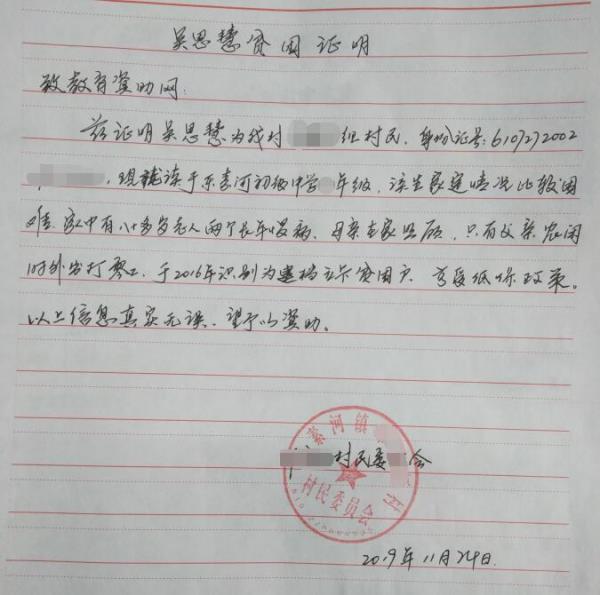 吴思慧贫困证明
致教育资助网:
兹证明吴思慧为我村 组村民,身份证号:6107272002
,现就读于东青河初级中学 年级,该生家庭情况比较困
难,家中有八十多岁老人两个长年患病,母亲在家照顾,只有父亲农闲
时外出打零工,于2016年识别为建档立卡贫困户,享受低保政策。
以上信息真实无误,望予以资助。
青河镇 村
村民委 会
村民委员会
2019年11月24日.